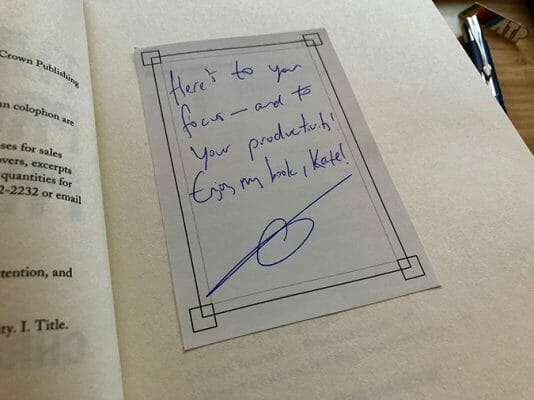 Crown Publishing
colophon are
ses for sales
overs, excerpts
quantities for
2-2232 or email
tention, and
ty. I. Title.
Here's to your
focus — and to
your productivity!
Enjoy my book, Kate!